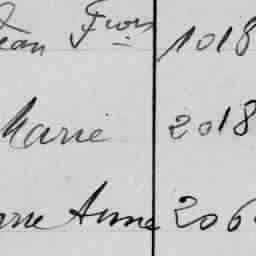 Jean Frois 1018
Marie 2018
rre Anne 206